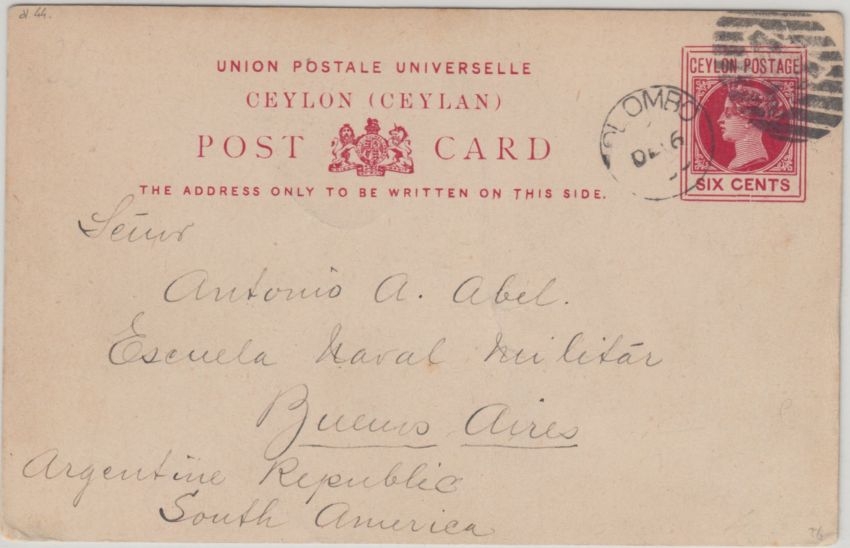 UNION POSTALE UNIVERSELLE
CEYLON (CEYLAN)
POST CARD
THE ADDRESS ONLY TO BE WRITTEN ON THIS SIDE.
CEYLON POSTAGE
SIX CENTS
OLOMBO
DE 16
Señor
Antonio A. Abel.
Escuela Naval Militár
Buenos Aires
Argentine Republic
South America